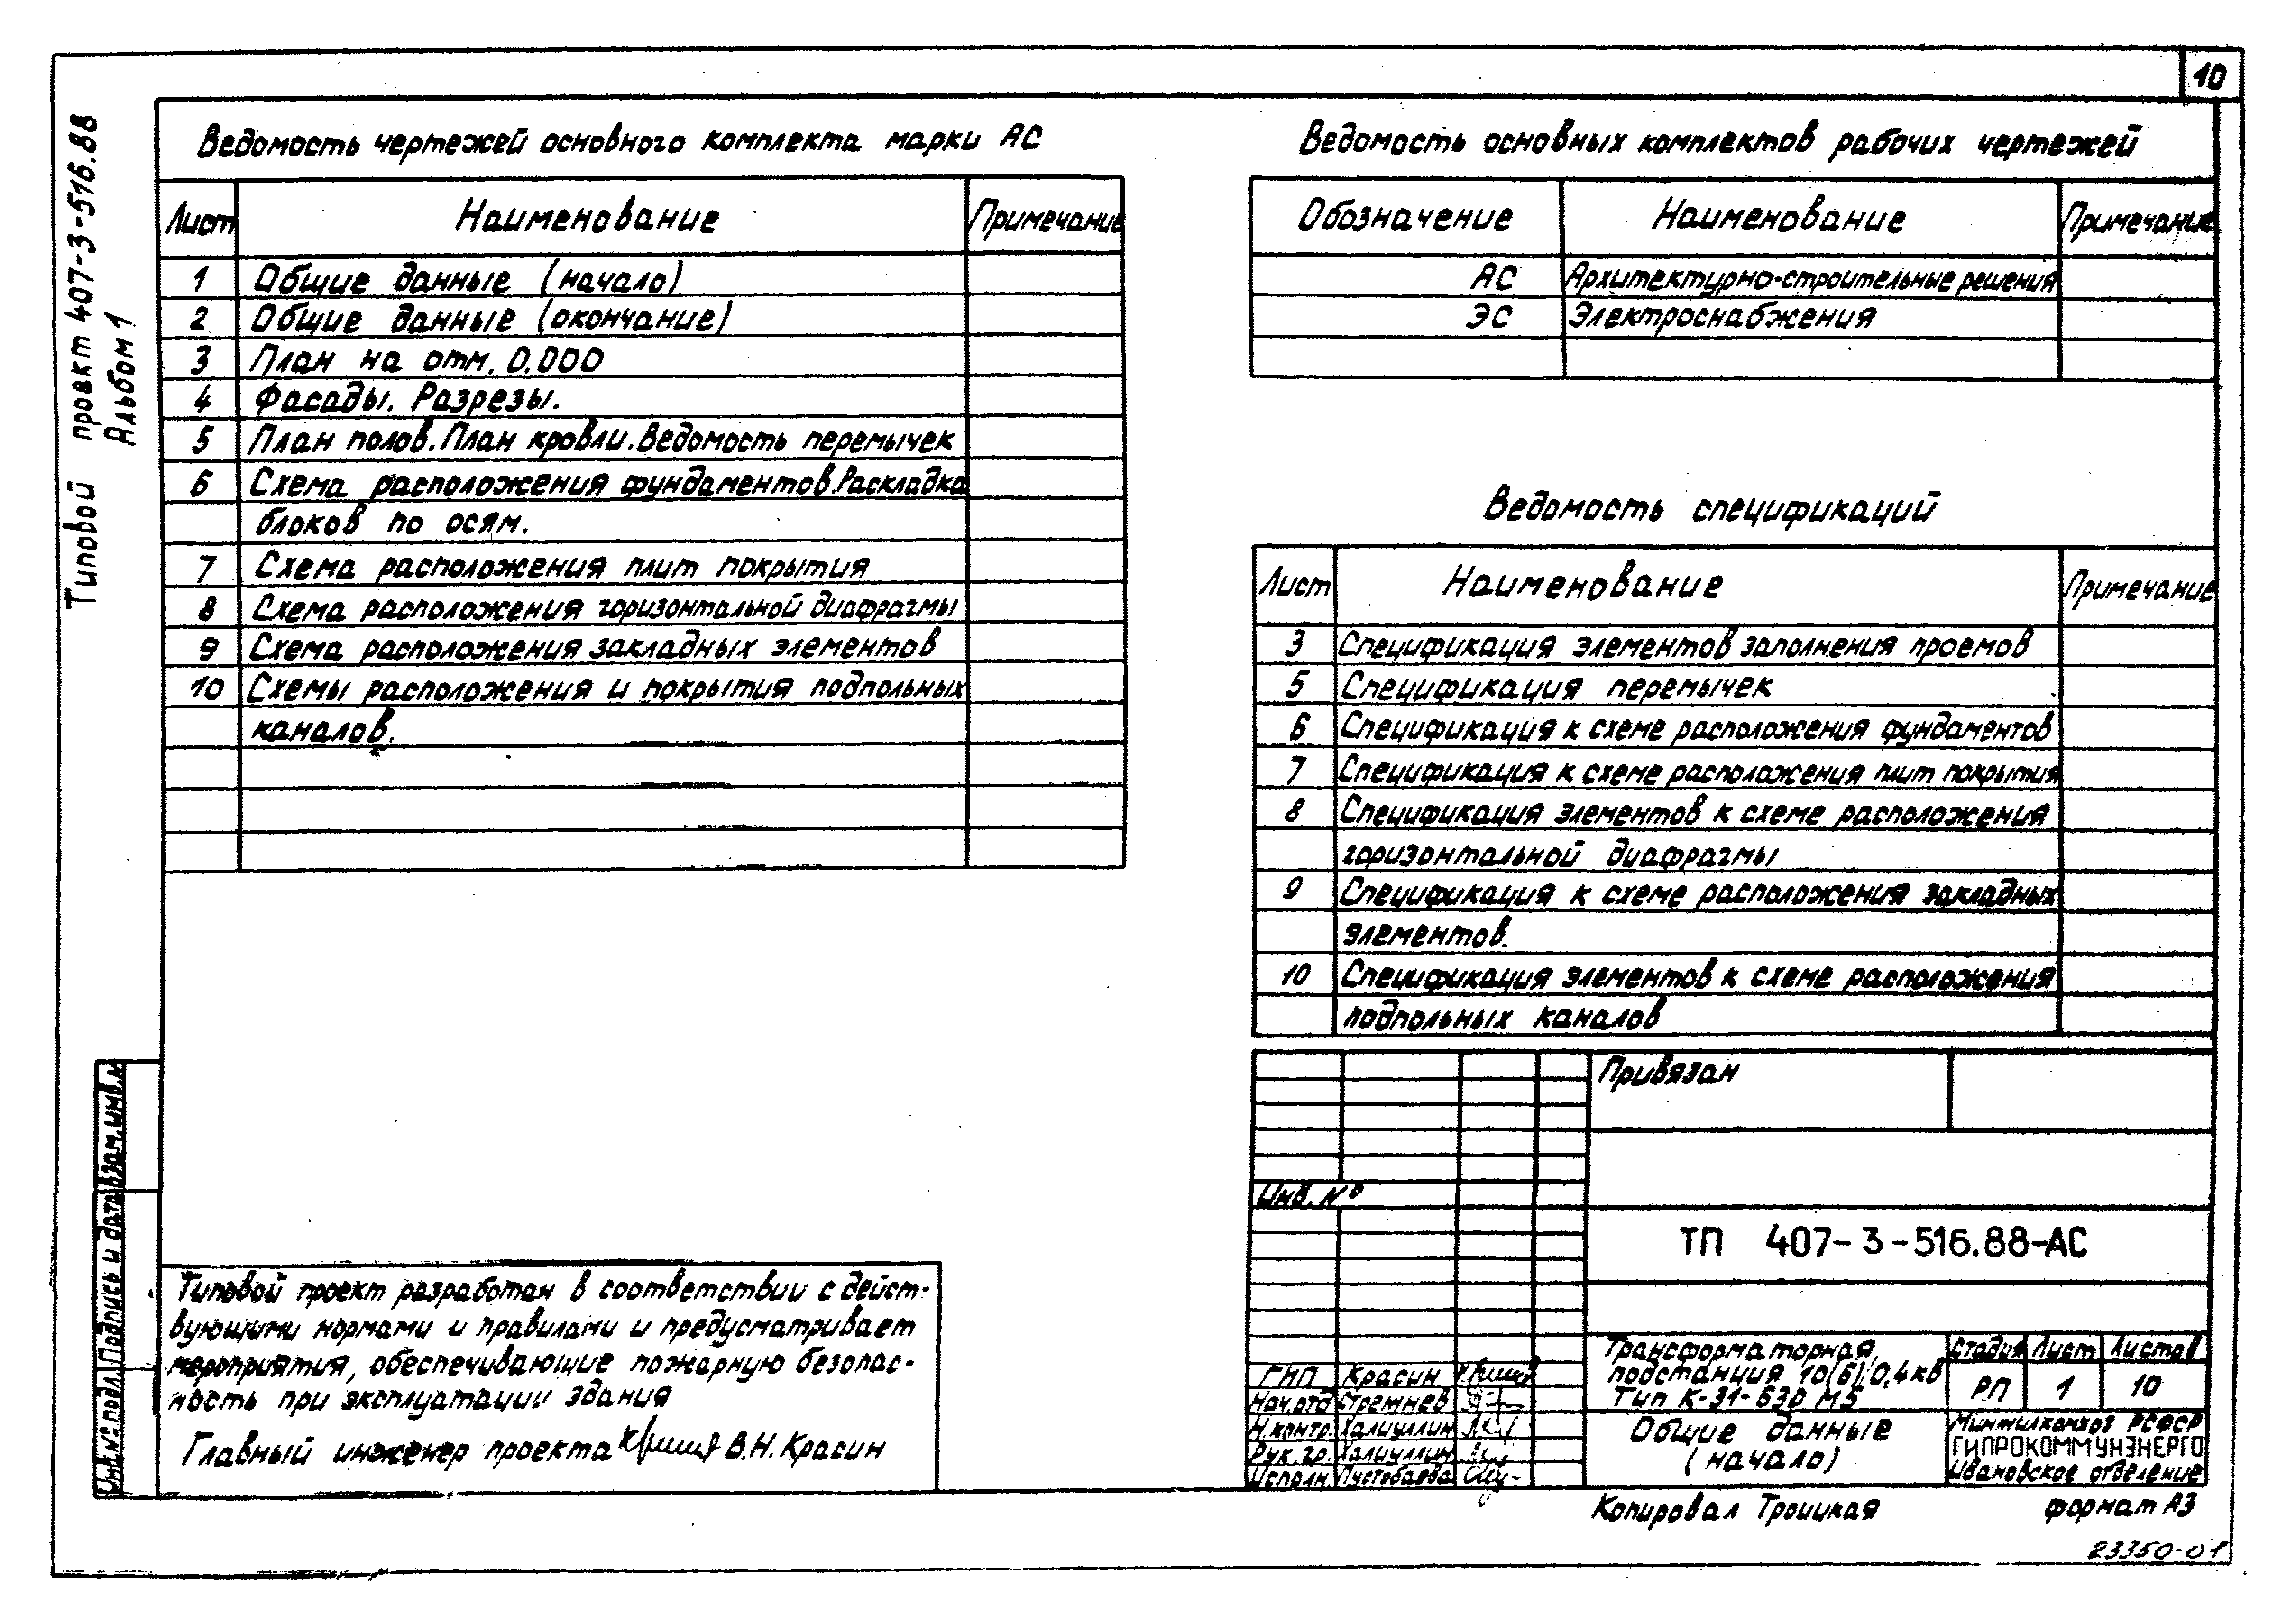 10
Типовой проект 407-3-516.88
Альбом 1
Ведомость чертежей основного комплекта марки АС
Лист Наименование Примечание
1 Общие данные (начало)
2 Общие данные (окончание)
3 План на отм. 0.000
4 Фасады. Разрезы.
5 План полов. План кровли. Ведомость перемычек
6 Схема расположения фундаментов. Раскладка
блоков по осям.
7 Схема расположения плит покрытия
8 Схема расположения горизонтальной диафрагмы
9 Схема расположения закладных элементов
10 Схемы расположения и покрытия подпольных
каналов.
Ведомость основных комплектов рабочих чертежей
Обозначение Наименование Примечание
АС Архитектурно-строительные решения
ЭС Электроснабжения
Ведомость спецификаций
Лист Наименование Примечание
3 Спецификация элементов заполнения проемов
5 Спецификация перемычек
6 Спецификация к схеме расположения фундаментов
7 Спецификация к схеме расположения плит покрытия
8 Спецификация элементов к схеме расположения
горизонтальной диафрагмы
9 Спецификация к схеме расположения закладных
элементов.
10 Спецификация элементов к схеме расположения
подпольных каналов
Взам. инв. №
Подпись и дата
Инв. № подл.
Типовой проект разработан в соответствии с дейст-
вующими нормами и правилами и предусматривает
мероприятия, обеспечивающие пожарную безопас-
ность при эксплуатации здания
Главный инженер проекта В.Н. Красин
Привязан
Инв. №
ТП 407-3-516.88-АС
ГИП Красин
Нач.отд Стремнев
Н.контр. Халиуллин
Рук. гр. Халиуллин
Исполн. Пустобаева
Трансформаторная
подстанция 10(6)/0,4 кв
Тип К-31-630 М5
Стадия Лист Листов
РП 1 10
Общие данные
(начало)
Минжилкомхоз РСФСР
ГИПРОКОММУНЭНЕРГО
Ивановское отделение
Копировал Троицкая формат А3
23350-01